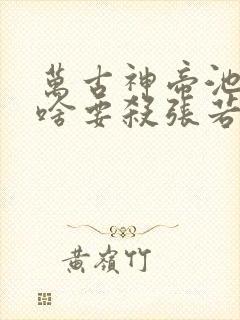 萬古神帝池
啥要殺張若
黃嶺竹